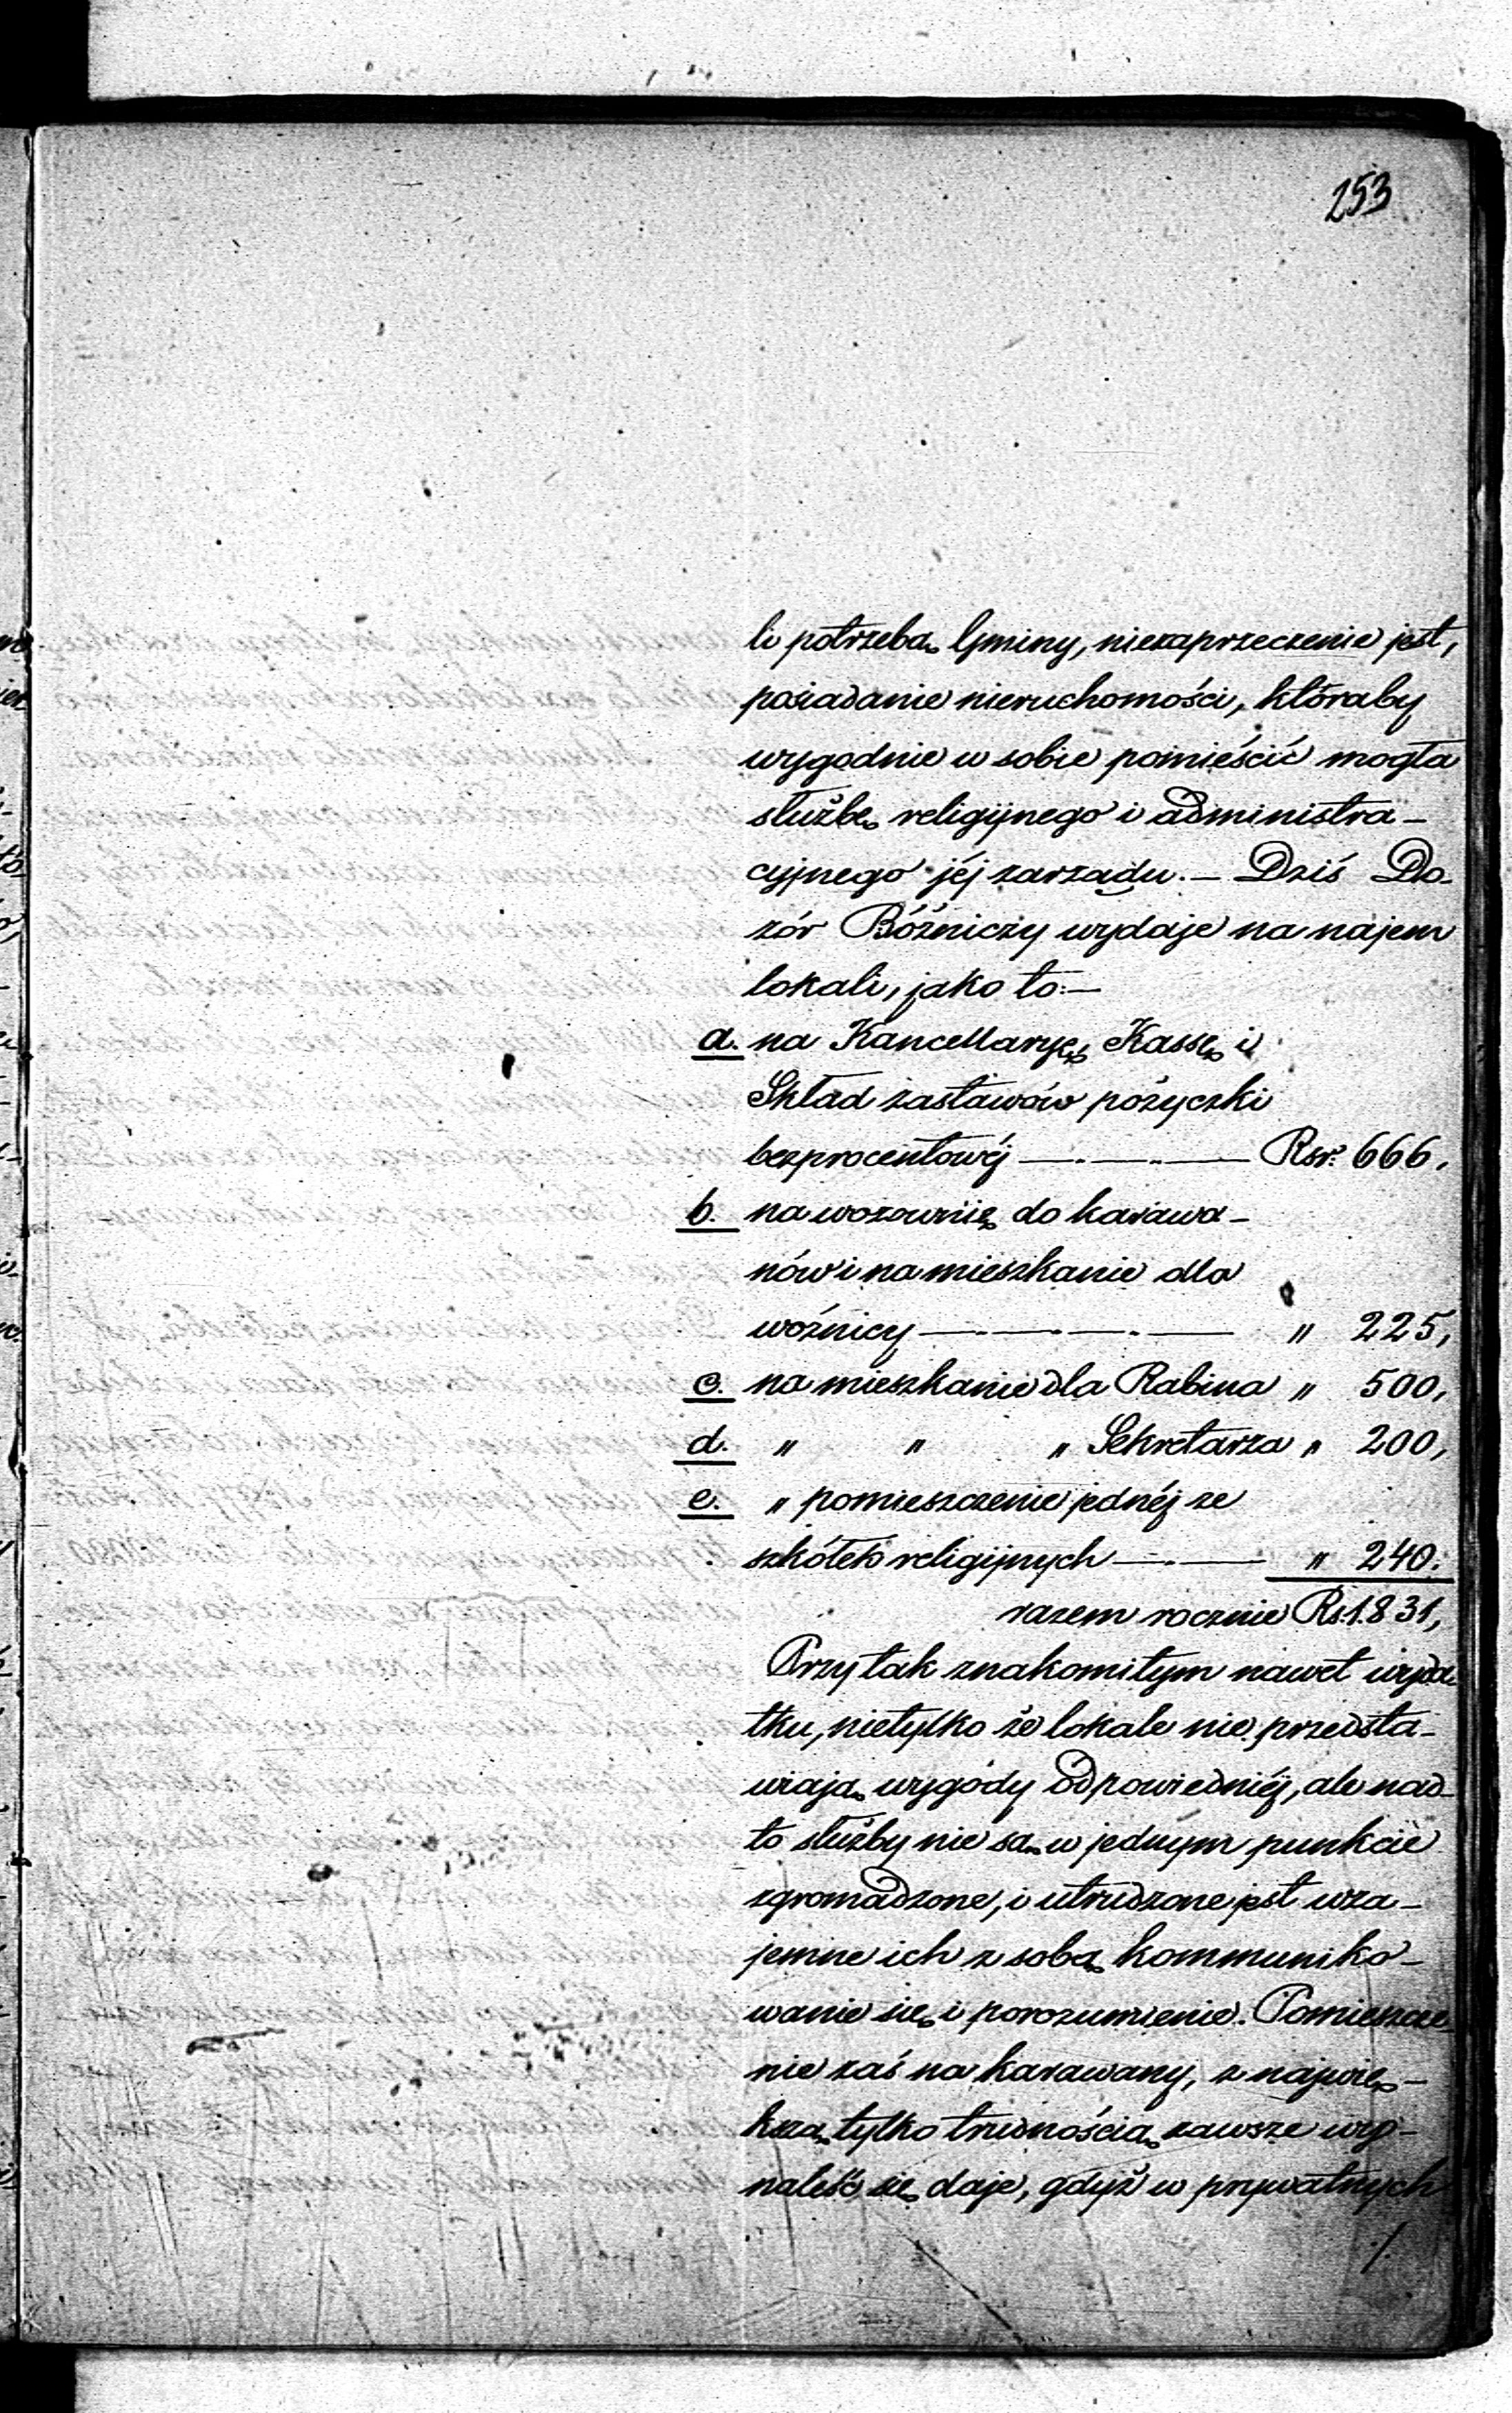 253
li potrzebą Gminy, niezaprzeczenie jest,
posiadanie nieruchomości, któraby
wygodnie w sobie pomieścić mogła
służbę religijnego i administra-
cyjnego jéj zarządu. — Dziś Do-
zór Bóżniczy wydaje na najem
lokali, jako to: —
a. na Kancellaryę, Kassę i
Skład zastawów pożyczki
bezprocentowéj —.—..— Rsr. 666.
b. na wozownię do karawa-
nów i na mieszkanie dla
woźnicy —..—.—..— " 225,
c. na mieszkanie dla Rabina " 500,
d. " " " Sekretarza " 200,
e. " pomieszczenie jednéj ze
szkółek religijnych —..— " 240.
razem rocznie Rs. 1.831,
Przy tak znakomitym nawet wyda-
tku, nietylko że lokale nie przedsta-
wiają wygody odpowiedniéj, ale nad-
to służby nie są w jednym punkcie
zgromadzone, i utrudzone jest wza-
jemne ich z sobą kommuniko-
wanie się i porozumienie. Pomieszcze-
nie zaś na karawany, z najwię-
kszą tylko trudnością zawsze wy-
naleść się daje, gdyż w prywatnych
./.